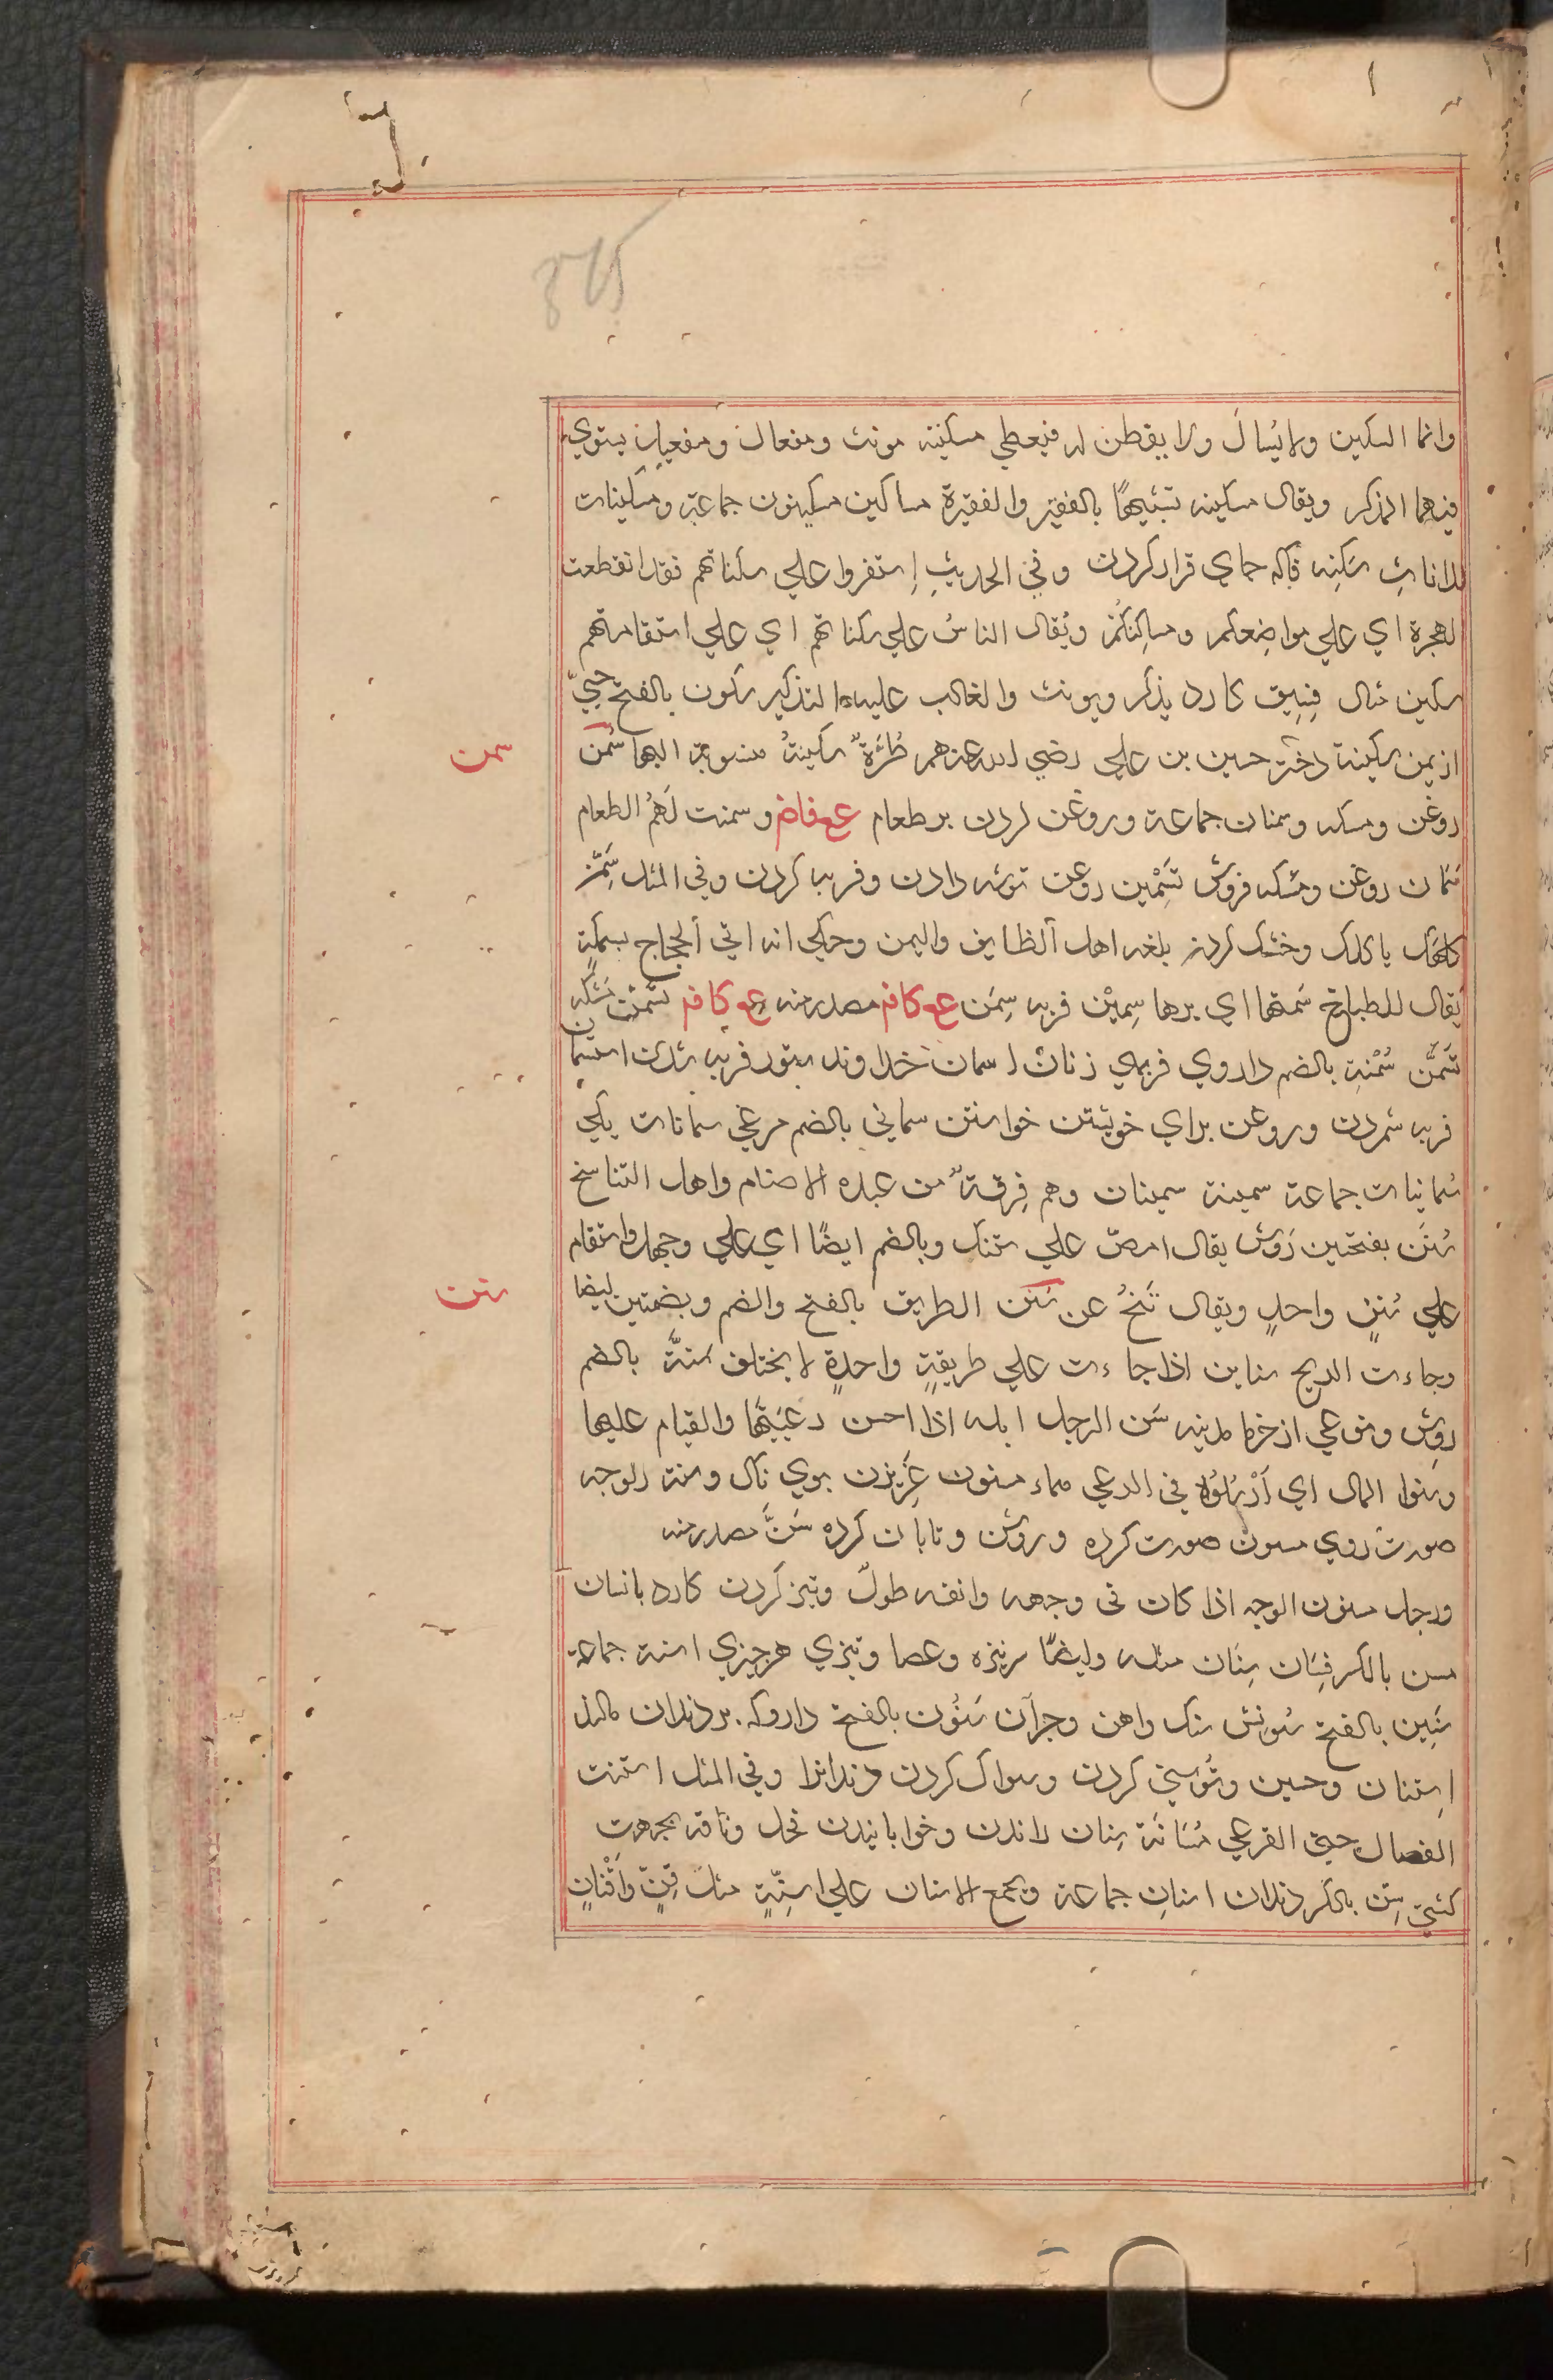 وانما المسكين ولا يُسال ولا يفطن له فيعطي مسكينة مونث ومفعال ومفعيل يستوي
فيهما المذكر ويقال مسكينه تشبيهًا بالفقير والفقيرة مساكين مسكينون جماعة ومسكينات
للاناثِ سَكِنه جاي قرار كردن وفي الحديثِ إستقروا علي سكناتهم فقد انقطعت
الهجرة اي علي مواضعكم ومساكِنكُمْ ويُقال الناسُ علي سكناتهم اي علي استقامتهم
سكين مثال فِسِيق كارد يذكر ويونث والغالب عليه التذكير سكون بالفتح حييّ
از يمن سكينة دختر حسين بن علي رضي الله عنهم طُرَّةٌ سكينةُ منسوبة اليها سَمْن
سمن
روغن ومسكه وسمنان جماعة وروغن كردن بر طعام ع فاض وسمنت لَهُمُ الطعام
سَمّان روغن ومسكه فروش تَسْمِين روغن توشه دادن وفربه كردن وفي المثل سَمِّنْ
كلبك ياكلك وخنك كردن بلغه اهل الطايف واليمن وحكي انه اتي الحجاج بسمكةٍ
فقال للطباخ سَمنّها اي بردها سِميْن فربه سِمَن ع كافر مصدر منه ع كافر تسمّنت مثله
تَسَمُّن سُمْنة بالضم داروي فربهي زنان اسمان خداوند ستور فربه شدن استسمان
فربه شمردن وروغن براي خويشتن خواستن سماني بالضم مرغي سمانات يكي
سُمانيات جماعة سمينة سمينان وهم فِرقةٌ من عبده الاصنام واهل التناسخ
سُنَن بفتحتين رَوِش يقال امض علي سننك وبالضم ايضًا اي علي وجهك واستقام
علي سُننٍ واحدٍ ويقال تَنَحَّ عن سَنَن الطريق بالفتح والضم وبضمتين ايضا
سنن
وجاءت الريح سناين اذا جاءت علي طريقةٍ واحدةٍ لا يختلف سُنَّة بالضم
رَوِش ونوعي از خرما مدينه سَن الرجل ابله اذا احسن رعيَتَها والقيام عليها
وسَنوا المال اي أَرْسَلُوه في الرعي مماء مسنون غَرِيزن بوي ناك وسنة الوجه
صورت روي مسنون صورت كرده وروشن وتابان كرده سَنَّ مصدر منه
ورجل مسنون الوجه اذا كان في وجهه وانفه طولٌ وتيز كردن كارد بافسان
مسن بالكسر فِسَان سِنَان مثله وايضًا سر نيزه وعصا وتيزي هر چيزي اسنة جماعة
سَنِين بالفتح سُونِش سنك واهن وجز آن سَنُون بالفتح داروكه بر دندان مالند
اِستنان وحسن وتُوسني كردن وسواك كردن دندانرا وفي المثل استنت
الفصال حتي القرعي مُسَانّة سِنان راندن وخوابانيدن فحل وناقه بجهت
كشني سِنّ بالكسر دندان اسنان جماعة ويجمع الاسنان علي اسنّةٍ مثل قِنّ وأَقْنانٍ